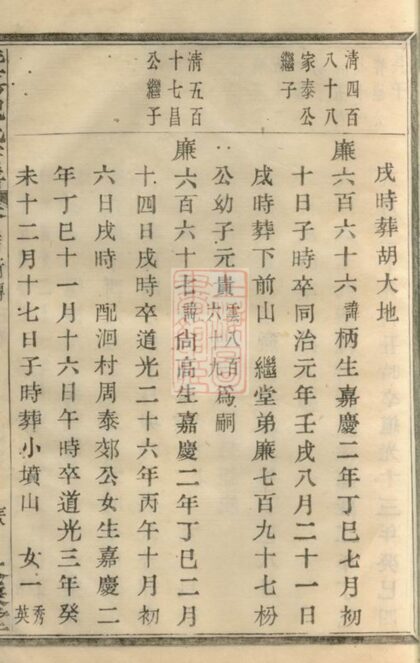 戌時葬胡大地
清四百
八十八
家泰公
繼子
廉六百六十六諱柄生嘉慶二年丁巳七月初
十日子時卒同治元年壬戌八月二十一日
戌時葬下前山 繼堂弟廉七百九十七枌
公幼子元貴雲八百六十九為嗣
清五百
十七昌
公繼子
廉六百六十七諱尙高生嘉慶二年丁巳二月
十四日戌時卒道光二十六年丙午十月初
六日戌時 配洄村周泰郊公女生嘉慶二
年丁巳十一月十六日午時卒道光三年癸
未十二月十七日子時葬小墳山 女一秀英